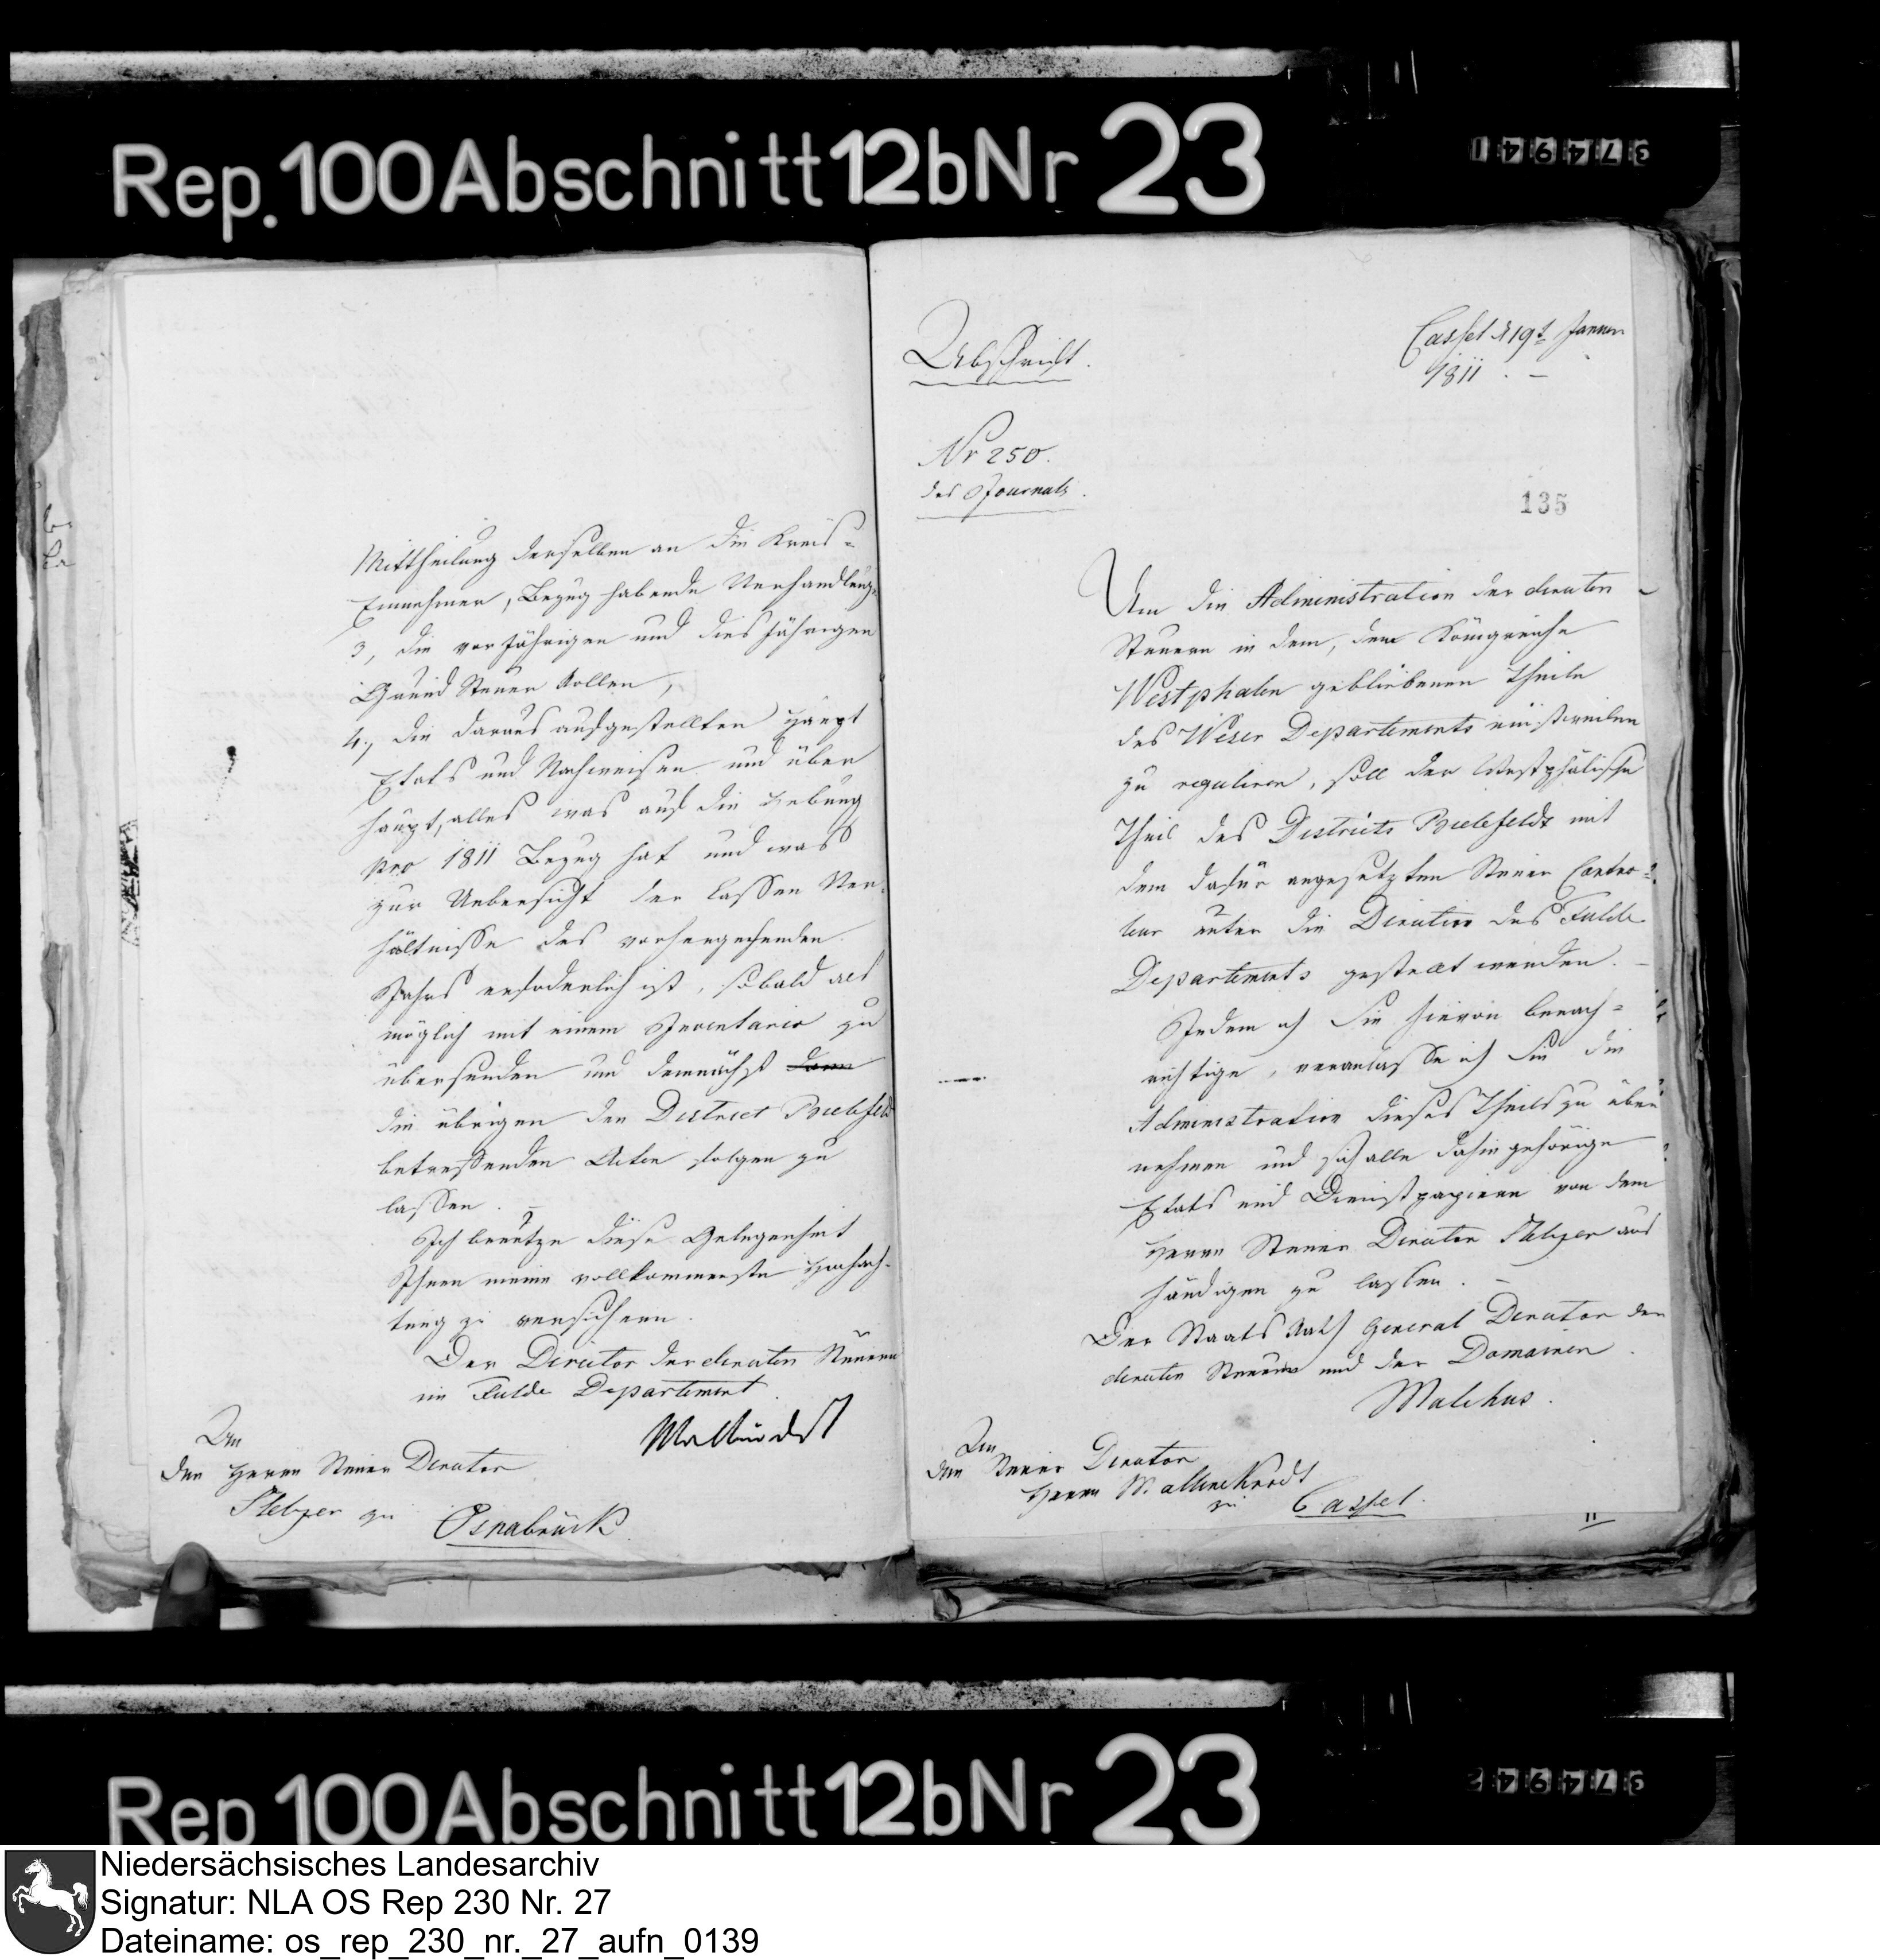 Rep. 100 Abschnitt 12b Nr 23
37494 1
Mittheilung derselben an die Kreis-
Einnehmer, Bezug habende Verhandlung,
3, die vorjährigen und diesjährigen
Grund Steuer Rollen,
4, die daraus aufgestellten Haupt
Etats und Nachweisen und über
haupt, alles was auf die Hebung
pro 1811 Bezug hat und was
zur Uebersicht der Cassen Ver-
hältnisse des vorhergehenden
Jahrs erforderlich ist, sobald als
möglich mit einem Inventario zu
übersenden und demnächst dann
die übrigen den District Bielefeld
betreffenden Acten folgen zu
lassen. –
Ich benutze diese Gelegenheit
Ihnen meine vollkommenste Hochach-
tung zu versichern.
Der Director der directen Steuern
im Fulde Departement
Mallinckrodt
An
den Herrn Steuer Director
zu Osnabrück
Abschrift.
Cassel d 19t Januar
1811. –
Nr 250.
des Journals.
135
Um die Administration der directen
Steuern in dem, dem Königreiche
Westphalen gebliebenen Theile
des Weser Departements einstweilen
zu reguliren, soll der Westphälische
Theil des Districts Bielefelds mit
dem dafür angesetzten Steuer Contro-
leur unter die Direction des Fulde
Departements gestellt werden. –
Indem ich Sie hievon benach-
richtige, veranlasse ich Sie die
Administration dieses Theils zu über
nehmen und sich alle dahin gehörige
Etats und Dienstpapiere von dem
Herrn Steuer Director aus
händigen zu lassen. –
Der Staats Rath General Director der
directen Steuern und der Domainen.
Malchus.
An
den Steuer Director
Herrn Mallinckrodt
zu Cassel.
11
Rep 100 Abschnitt 12b Nr 23
37494 2
Niedersächsisches Landesarchiv
Signatur: NLA OS Rep 230 Nr. 27
Dateiname: os_rep_230_nr._27_aufn_0139